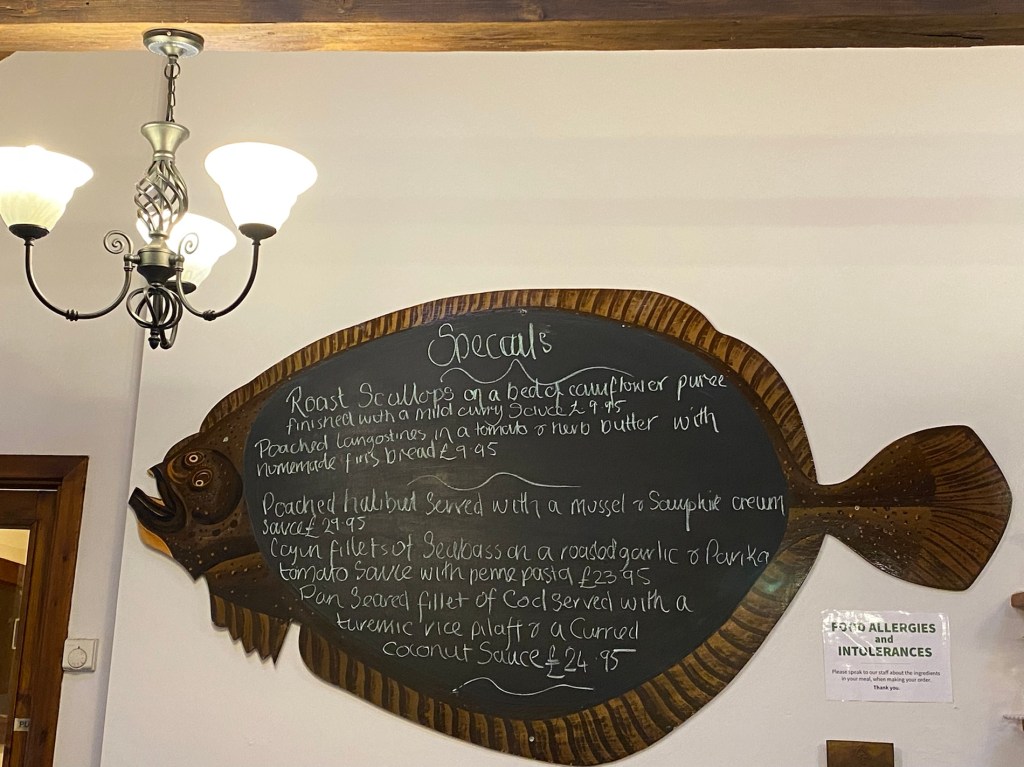 Specials
Roast Scallops on a bed of cauiflower puree
finished with a mild curry Sauce £9.95
Poached Langostines in a tomato & herb butter with
homemade firis bread £9.95
Poached halibut Served with a mussel & Samphire cream
Sauce £29.95
Cajun fillets of Seabass on a roasted garlic & Parika
tomato Sauce with penne pasta £23.95
Pan Seared fillet of Cod served with a
turemic rice pilaff & a Curried
coconut Sauce £24.95
FOOD ALLERGIES
and
INTOLERANCES
Please speak to our staff about the ingredients
in your meal, when making your order.
Thank you.